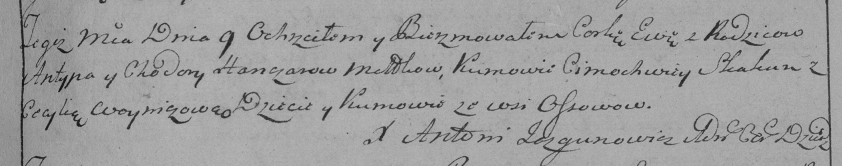 Tegiż Mca Dnia 9 Ochrzciłem y Bierzmowałem Corkę Ewę z Rodzicow
Antypa y Chodory Hanczarow Małżkow, Kumowie Cimochwiey Skakun z
Cecylią Woyniczową Dziecie y Kumowie ze wsi Ossowow.
X Antoni Jazgunowicz